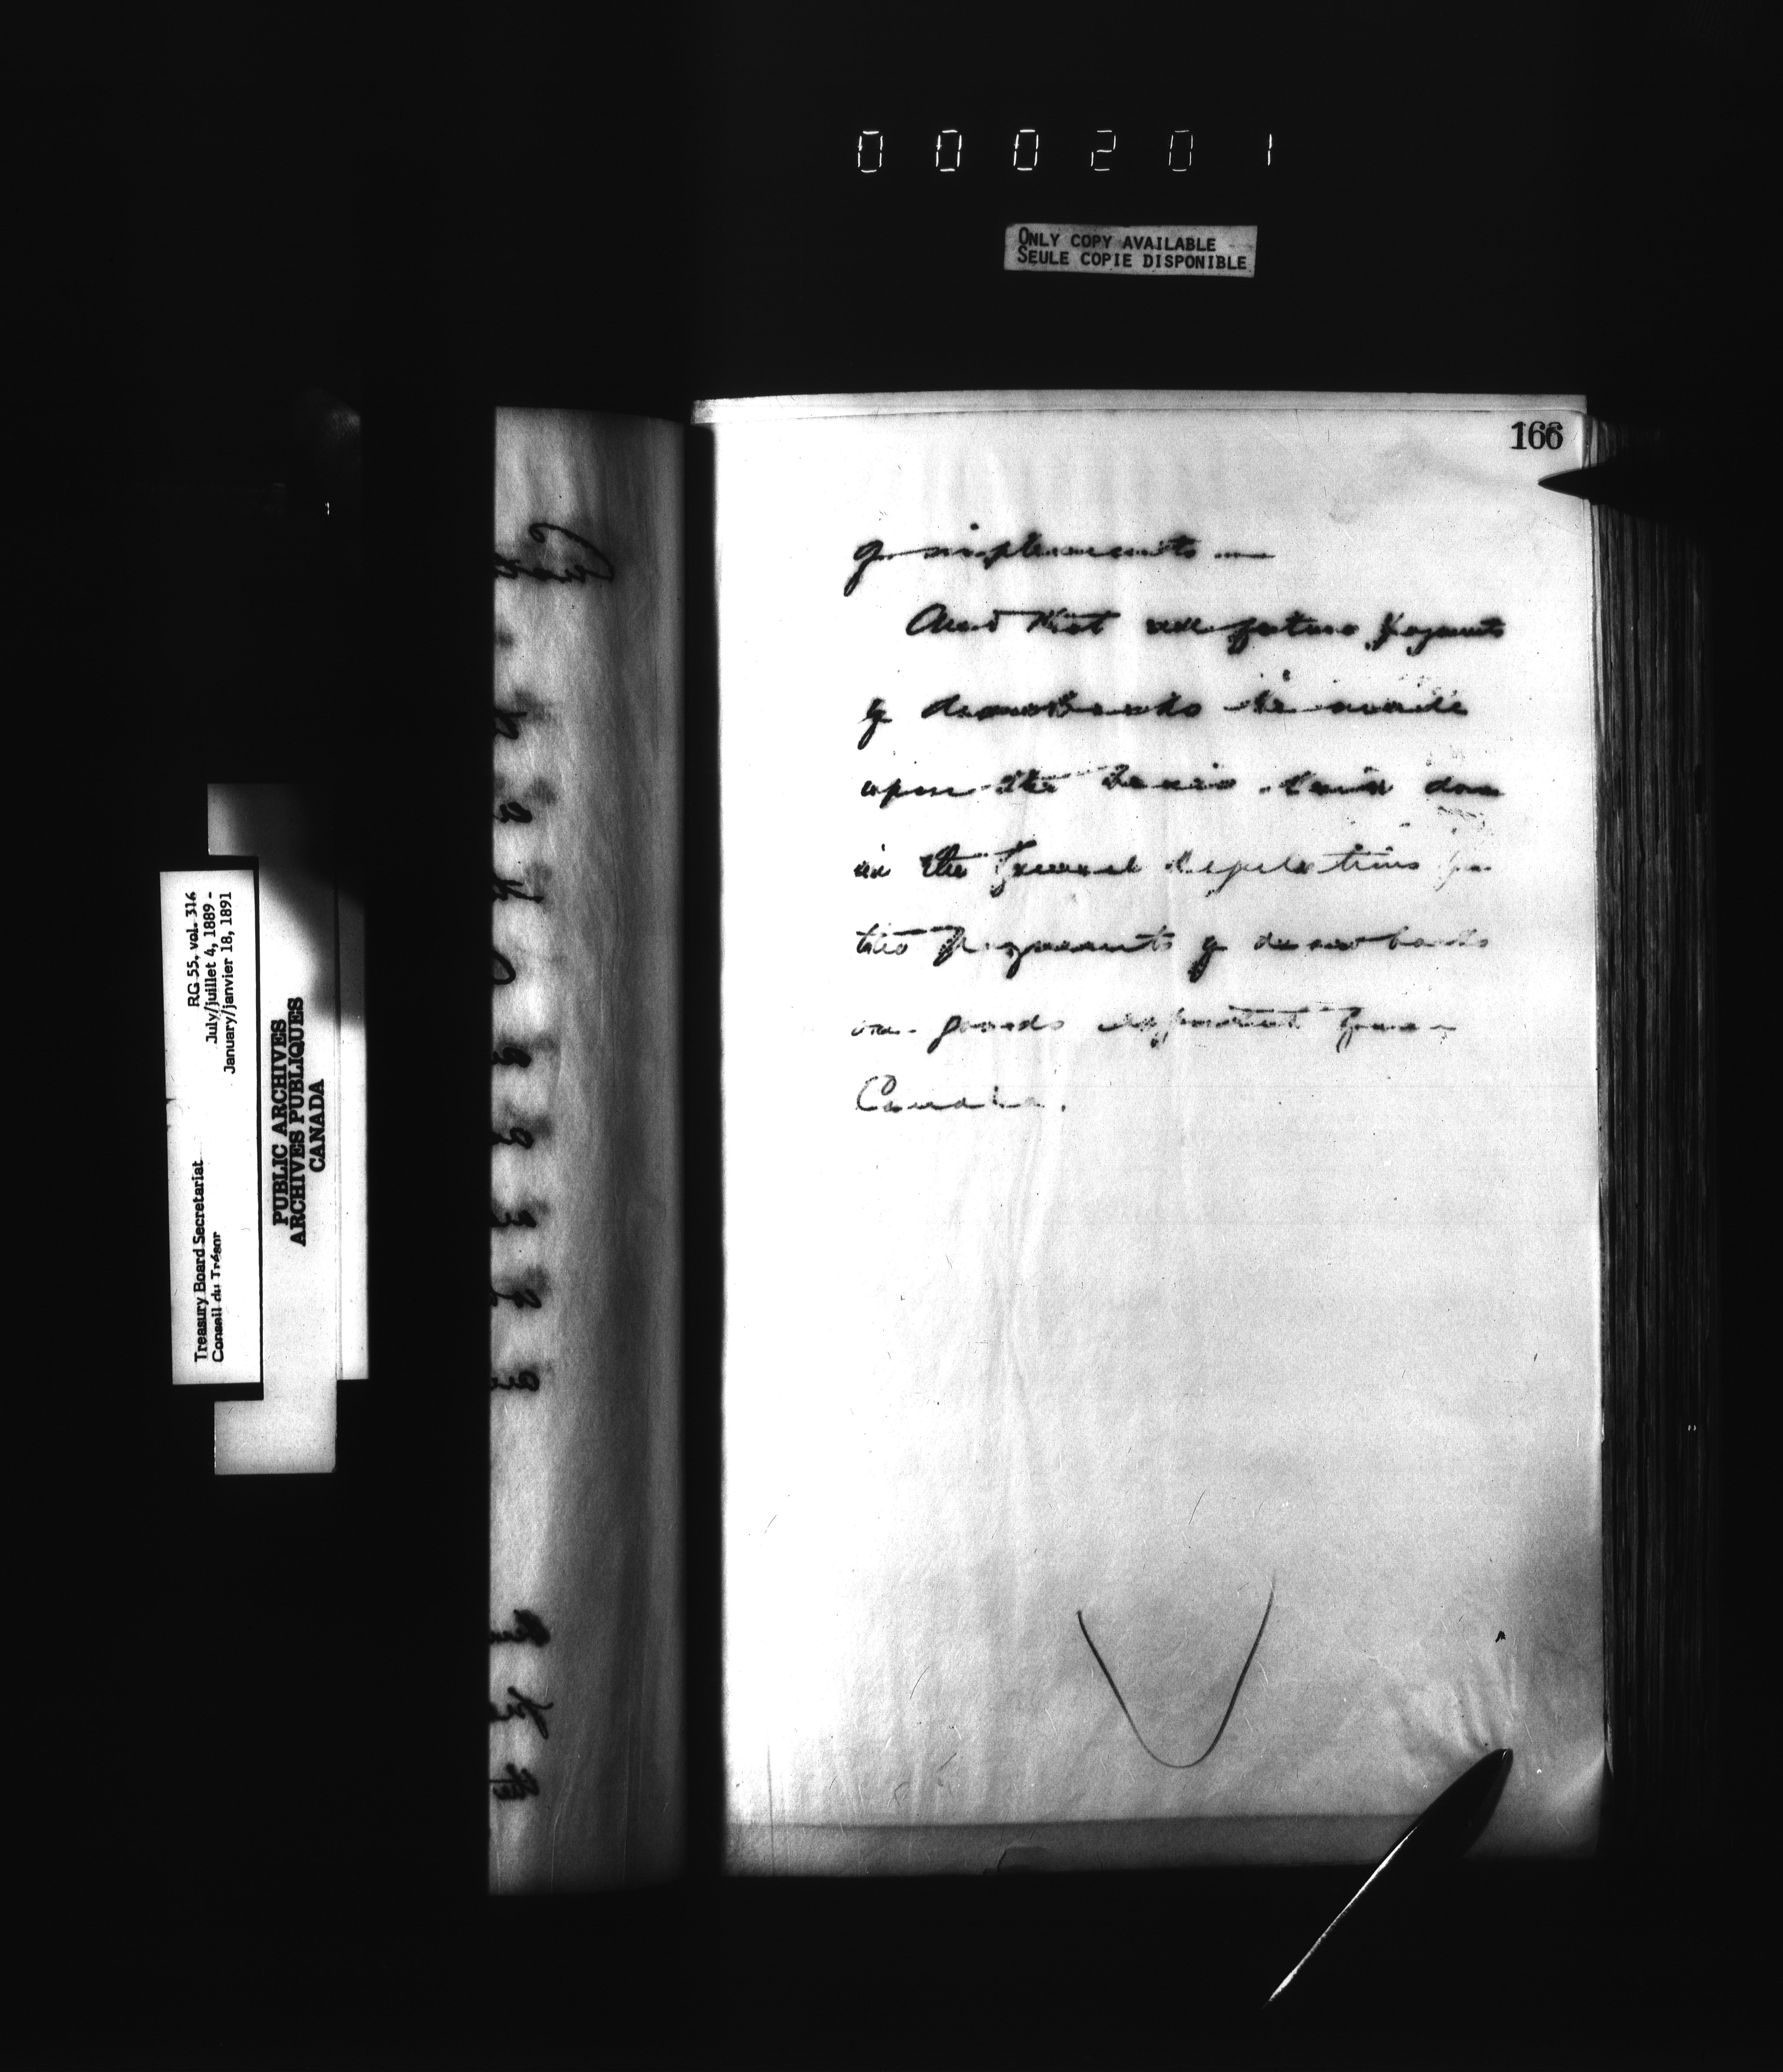 000201
ONLY COPY AVAILABLE
SEULE COPIE DISPONIBLE
166
of implements —
And that all future payments
of drawbacks be made
upon the basis laid down
in the General Regulations for
the payments of drawbacks
on goods exported from
Canada.
RG 55, vol. 316
July/juillet 4, 1889 -
January/janvier 18, 1891
Treasury Board Secretariat
Conseil du Trésor
PUBLIC ARCHIVES
ARCHIVES PUBLIQUES
CANADA